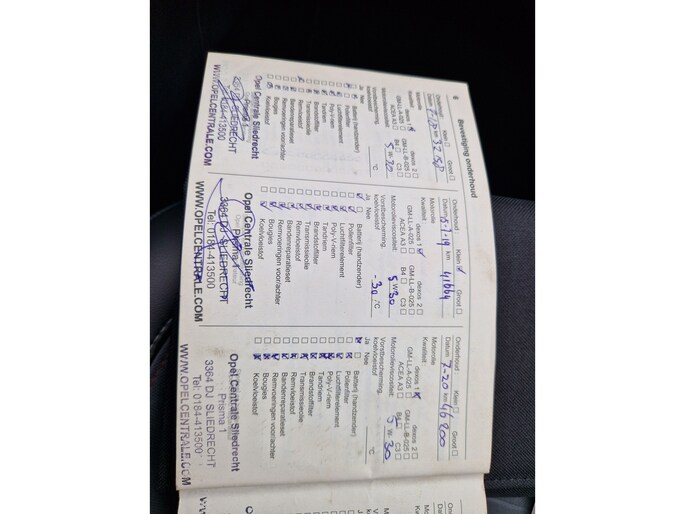 6 Bevestiging onderhoud
Onderhoud Klein Groot
Datum km
Motorolie
Kwaliteit dexos 1 dexos 2
GM-LL-A-025 GM-LL-B-025
ACEA A3 B4 C3
Motorolieviscositeit: 5 W-30
Vorstbescherming
koelvloeistof °C
Ja Nee
Batterij (handzender)
Pollenfilter
Luchtfilterelement
Poly-V-riem
Tandriem
Brandstoffilter
Transmissieolie
Remvloeistof
Bandenreparatieset
Remvoeringen voor/achter
Bougies
Koelvloeistof
Opel Centrale Sliedrecht
Prisma 1
3364 DJ SLIEDRECHT
Tel: 0184-413500
WWW.OPELCENTRALE.COM
Onderhoud Klein Groot
Datum km 41664
Motorolie
Kwaliteit dexos 1 dexos 2
GM-LL-A-025 GM-LL-B-025
ACEA A3 B4 C3
Motorolieviscositeit: 5 W-30
Vorstbescherming
koelvloeistof -30 °C
Ja Nee
Batterij (handzender)
Pollenfilter
Luchtfilterelement
Poly-V-riem
Tandriem
Brandstoffilter
Transmissieolie
Remvloeistof
Bandenreparatieset
Remvoeringen voor/achter
Bougies
Koelvloeistof
Opel Centrale Sliedrecht
Prisma 1
3364 DJ SLIEDRECHT
Tel: 0184-413500
WWW.OPELCENTRALE.COM
Onderhoud Klein Groot
Datum 2-20 km 46200
Motorolie
Kwaliteit dexos 1 dexos 2
GM-LL-A-025 GM-LL-B-025
ACEA A3 B4 C3
Motorolieviscositeit: 5 W-30
Vorstbescherming
koelvloeistof °C
Ja Nee
Batterij (handzender)
Pollenfilter
Luchtfilterelement
Poly-V-riem
Tandriem
Brandstoffilter
Transmissieolie
Remvloeistof
Bandenreparatieset
Remvoeringen voor/achter
Bougies
Koelvloeistof
Opel Centrale Sliedrecht
Prisma 1
3364 DJ SLIEDRECHT
Tel: 0184-413500
WWW.OPELCENTRALE.COM